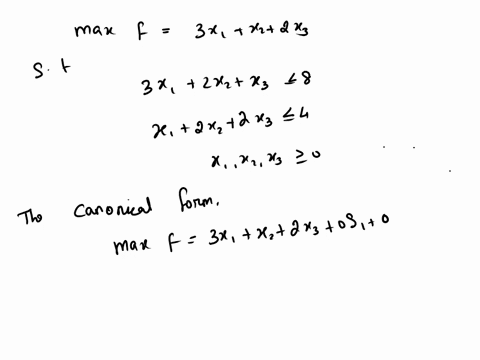 max f = 3x₁ + x₂ + 2x₃
S.t
3x₁ + 2x₂ + x₃ ≤ 8
x₁ + 2x₂ + 2x₃ ≤ 4
x₁, x₂, x₃ ≥ 0
The canonical form,
max f = 3x₁ + x₂ + 2x₃ + 0S₁ + 0